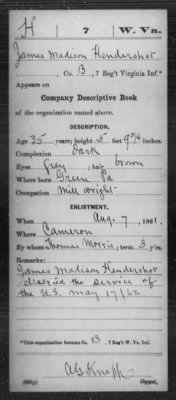 H 7 W. Va.
James Madison Hendershot
, Co. B, 7 Reg't Virginia Inf.*
Appears on
Company Descriptive Book
of the organization named above.
DESCRIPTION.
Age 35 years; height 5 feet 9 3/4 inches.
Complexion Dark
Eyes grey; hair brown
Where born Green Pa
Occupation Mill wright
ENLISTMENT.
When Aug. 7, 1861.
Where Cameron
By whom Thomas Morris; term 3 y'rs.
Remarks:
James Madison Hendershot
the service of
the U.S. May 17/62
*This organization became Co. B, 7 Reg't W. Va. Inf.
Copyist.